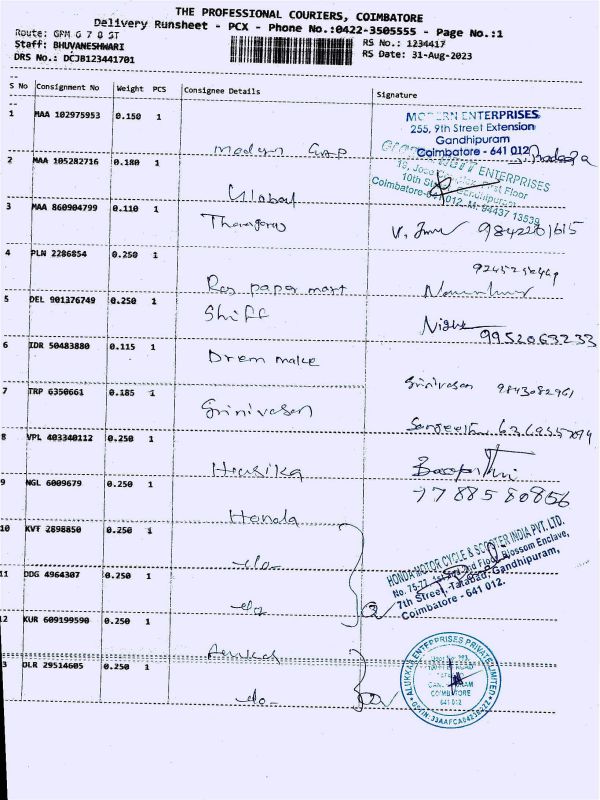 THE PROFESSIONAL COURIERS, COIMBATORE
Delivery Runsheet - PCX - Phone No.:0422-3505555 - Page No.:1
Route: GPM G 7 8 ST
RS No.: 1234417
Staff: BHUVANESHWARI
RS Date: 31-Aug-2023
DRS No.: DCJB123441701
S No Consignment No Weight PCS Consignee Details Signature
1 MAA 102975953 0.150 1
MODERN ENTERPRISES
255, 9th Street Extension
Gandhipuram
Coimbatore - 641 012
Modern
2 MAA 105282716 0.180 1
ENTERPRISES
First Floor
10th
Coimbatore-641 012. M: 94437 13539
Global
3 MAA 860904799 0.110 1
9842201615
4 PLN 2286854 0.250 1
Raj paper mart
5 DEL 901376749 0.250 1
Shiff
9952063233
6 IDR 50483880 0.115 1
Drem make
Srinivasan 9843082961
7 TRP 6350661 0.185 1
Srinivasan
8 VPL 403340112 0.250 1
Harsika
7788580856
9 NGL 6009679 0.250 1
Honda
10 KVT 2898850 0.250 1
HONDA MOTOR CYCLE & SCOOTER INDIA PVT. LTD.
No. 75-77, 1st and 2nd Floor, Blossom Enclave,
7th Street, Tatabad, Gandhipuram,
Coimbatore - 641 012.
-do-
11 DDG 4964307 0.250 1
-do-
12 KUR 609199590 0.250 1
ALUKKAS ENTERPRISES PRIVATE LIMITED
COIMBATORE
641 012
3 DLR 29514605 0.250 1
-do-